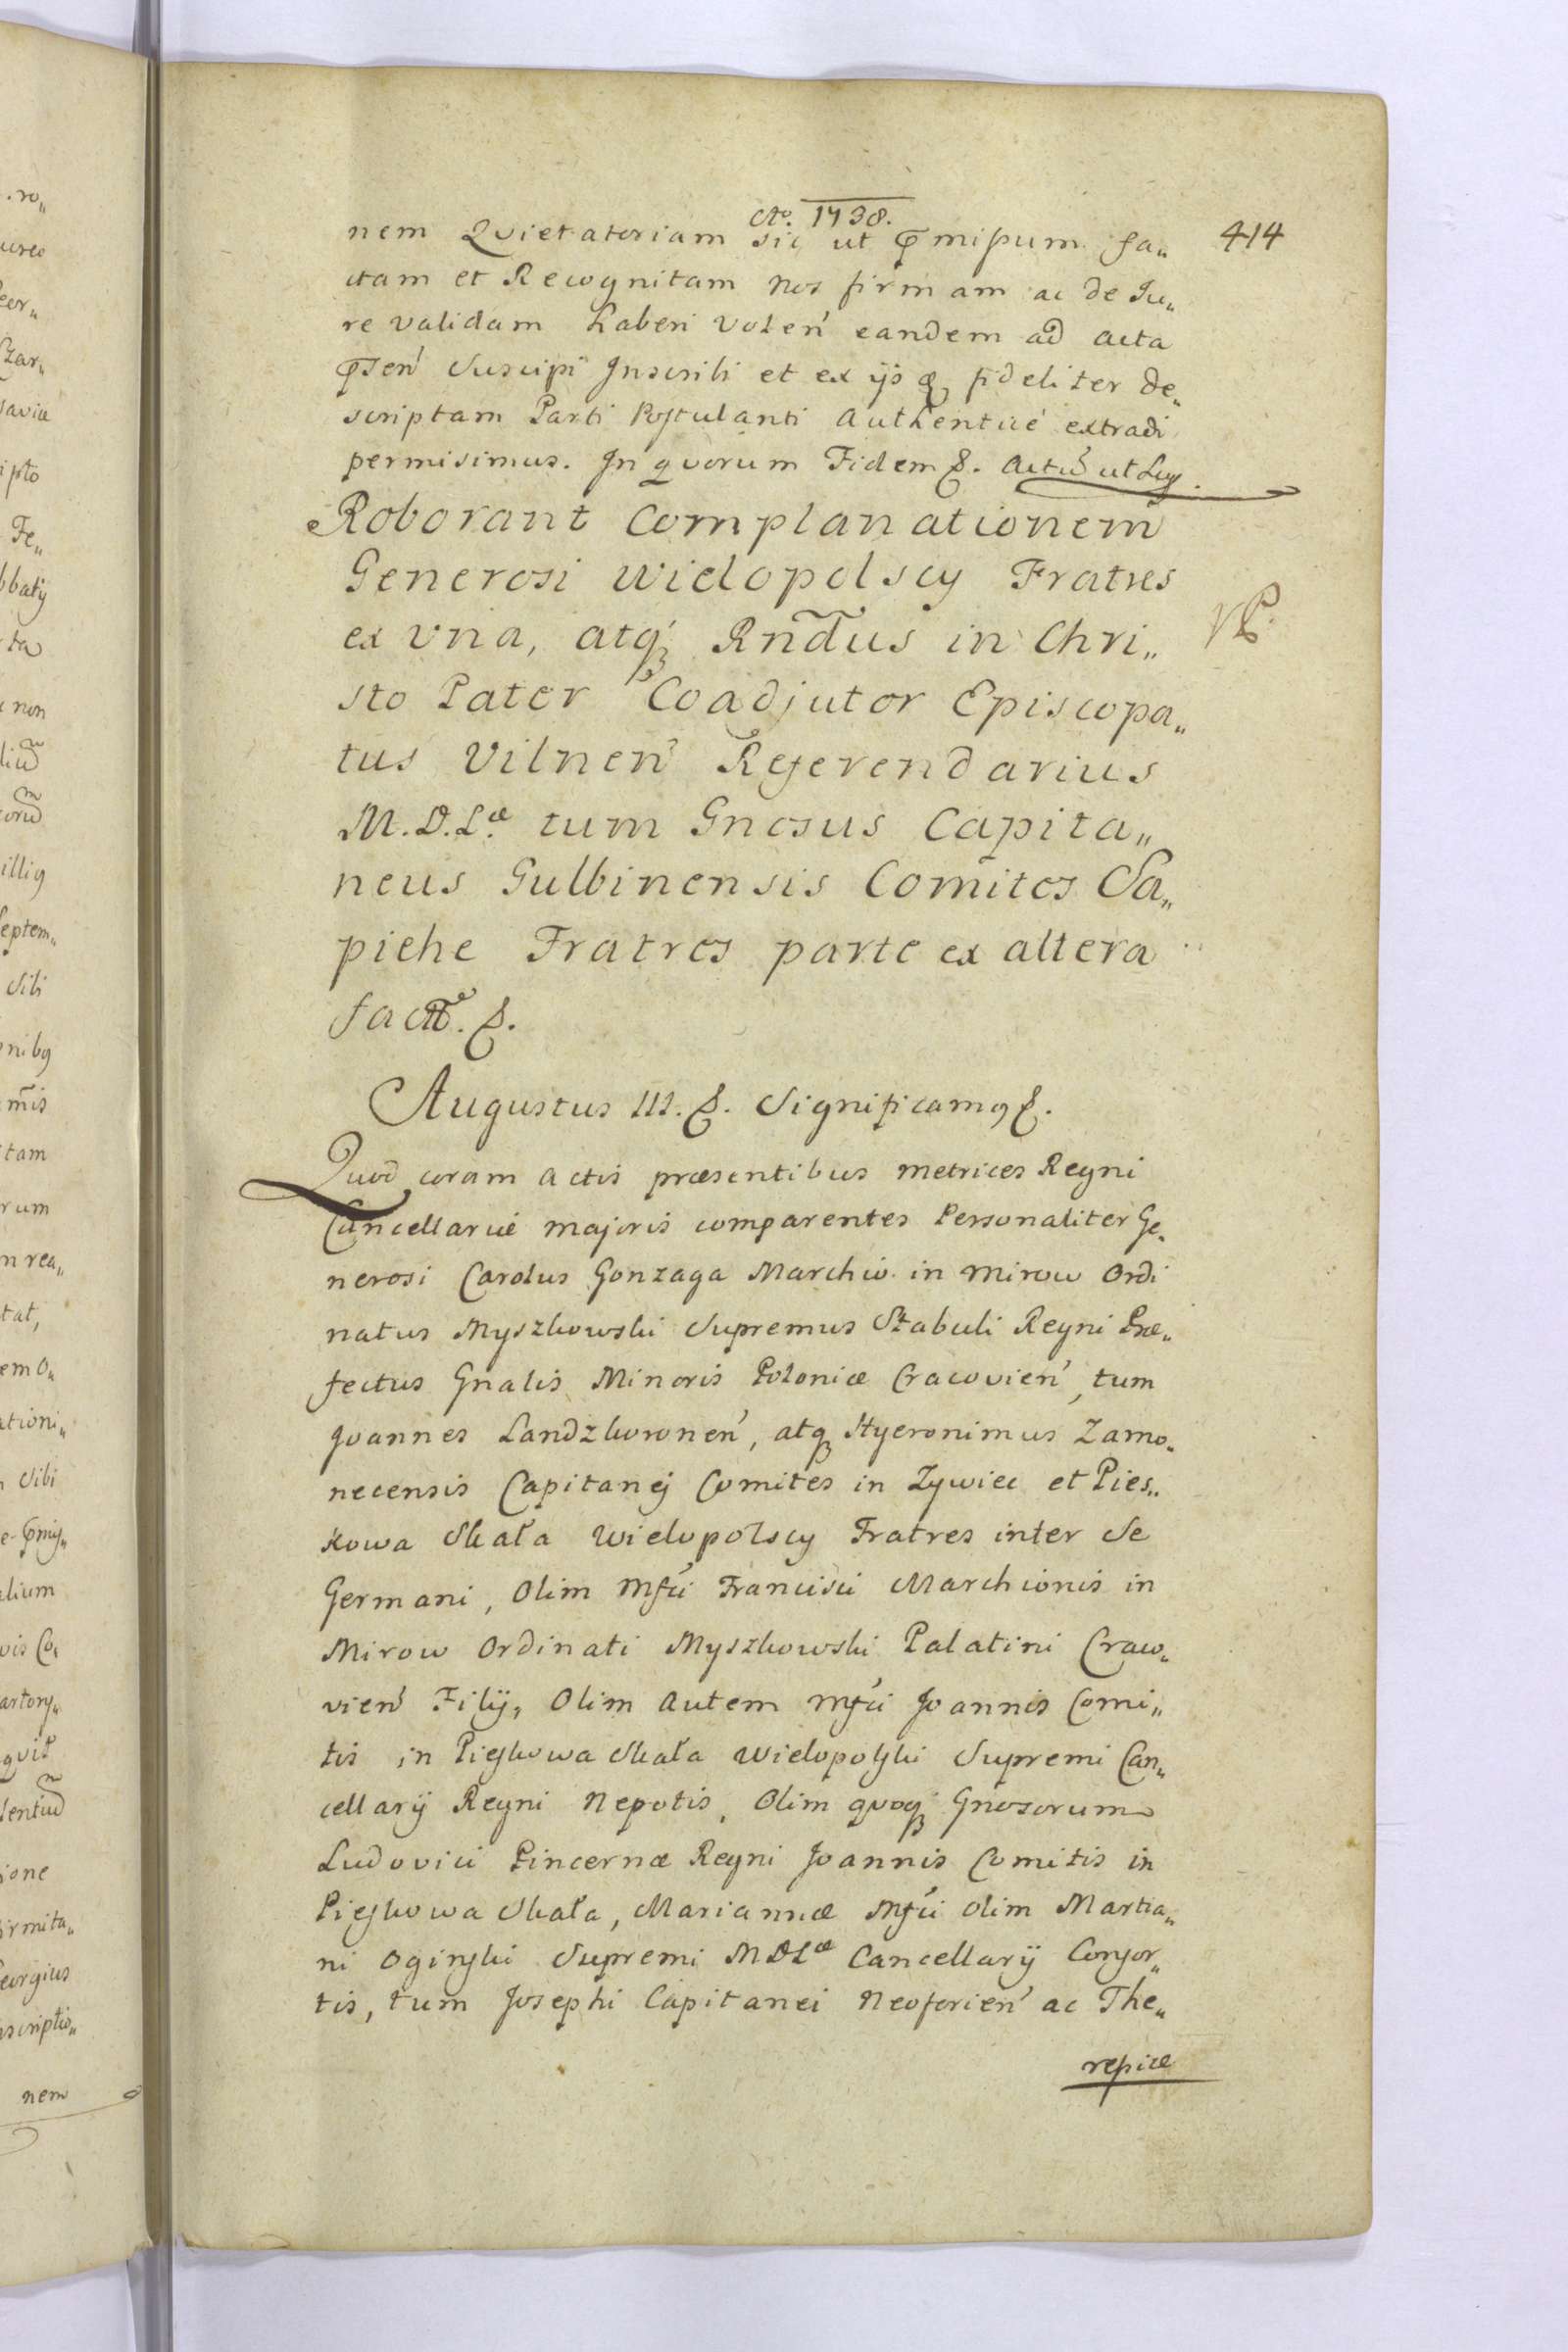 Ao. 1738.
414
nem Quietatoriam sic ut pmissum fa„
ctam et Recognitam nos firmam ac de Ju„
re validam haberi volen̄ eandem ad acta
psen̄ suscipi Inscribi et ex ijs fideliter de„
scriptam Parti Postulanti authenticè extradi
permisimus. In quorum Fidem &. Actũ ut Sup.
Roborant Complanationem
Generosi Wielopolscy Fratres
ex una, atq; Rndus in Chri„
sto Pater Coadjutor Episcopa„
tus Vilnen̄ Referendarius
M.D.Læ tum Gnosus Capita„
neus Gulbinensis Comites Sa„
piehe Fratres parte ex altera
fact. &.
Augustus III. &. Significamus &.
Quod coram actis præsentibus metrices Regni
Cancellariæ majoris comparentes Personaliter Ge„
nerosi Carolus Gonzaga Marchio in Mirow Ordi
natus Myszkowski Supremus Stabuli Regni Præ„
fectus Gnalis Minoris Poloniæ Cracovien̄, tum
Joannes Landzkoronen̄, atq; Hyeronimus Zarno„
necensis Capitanej Comites in Zywiec et Pies„
kowa Skała Wielopolscy Fratres inter se
Germani, Olim Mfci Francisci Marchionis in
Mirow Ordinati Myszkowski Palatini Craco„
vien̄ Filij, Olim autem Mfci Joannis Comi„
tis in Pieskowa Skała Wielopolski Supremi Can„
cellarij Regni Nepotis, Olim quoq; Gnosorum
Ludovici Pincernæ Regni Joannis Comitis in
Pieskowa Skała, Mariannæ Mfci olim Martia„
ni Oginski Supremi MDLæ Cancellarij Consor„
tis, tum Josephi Capitanei Neoforien̄ ac The„
resiæ